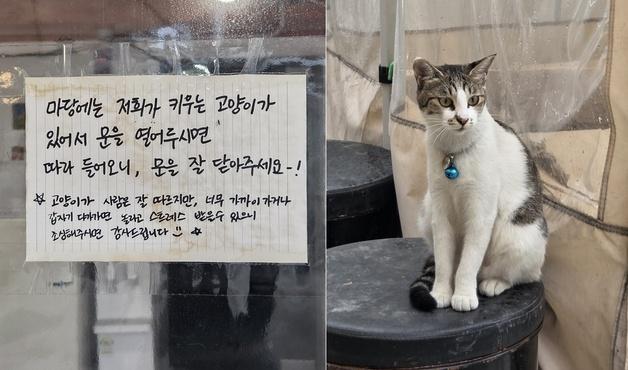 마당에는 저희가 키우는 고양이가
있어서 문을 열어두시면
따라 들어오니, 문을 잘 닫아주세요~!
☆ 고양이가 사람을 잘 따르지만, 너무 가까이 가거나
갑자기 다가가면 놀라고 스트레스 받을 수 있으니
조심해주시면 감사드립니다 :) ☆